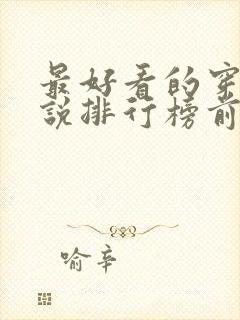 最好看的穿
説排行榜前
喻辛